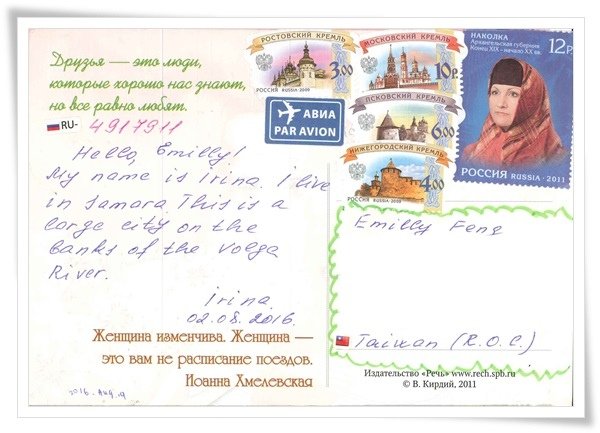 Друзья — это люди,
которые хорошо нас знают,
но все равно любят.
RU- 4917911
Hello, Emilly!
My name is Irina. I live
in Samara This is a
large city on the
banks of the Volga
River.
Irina.
02.08.2016.
Женщина изменчива. Женщина —
это вам не расписание поездов.
Иоанна Хмелевская
2016. AUG. 9
РОСТОВСКИЙ КРЕМЛЬ
3.00
РОССИЯ RUSSIA·2009
МОСКОВСКИЙ КРЕМЛЬ
10 р.
АВИА
PAR AVION
ПСКОВСКИЙ КРЕМЛЬ
6.00
НИЖЕГОРОДСКИЙ КРЕМЛЬ
4.00
РОССИЯ RUSSIA·2009
НАКОЛКА
Архангельская губерния
Конец XIX – начало XX вв.
12 Р.
РОССИЯ RUSSIA · 2011
Emilly Feng
Taiwan (R.O.C)
Издательство «Речь» www.rech.spb.ru
© В. Кирдий, 2011